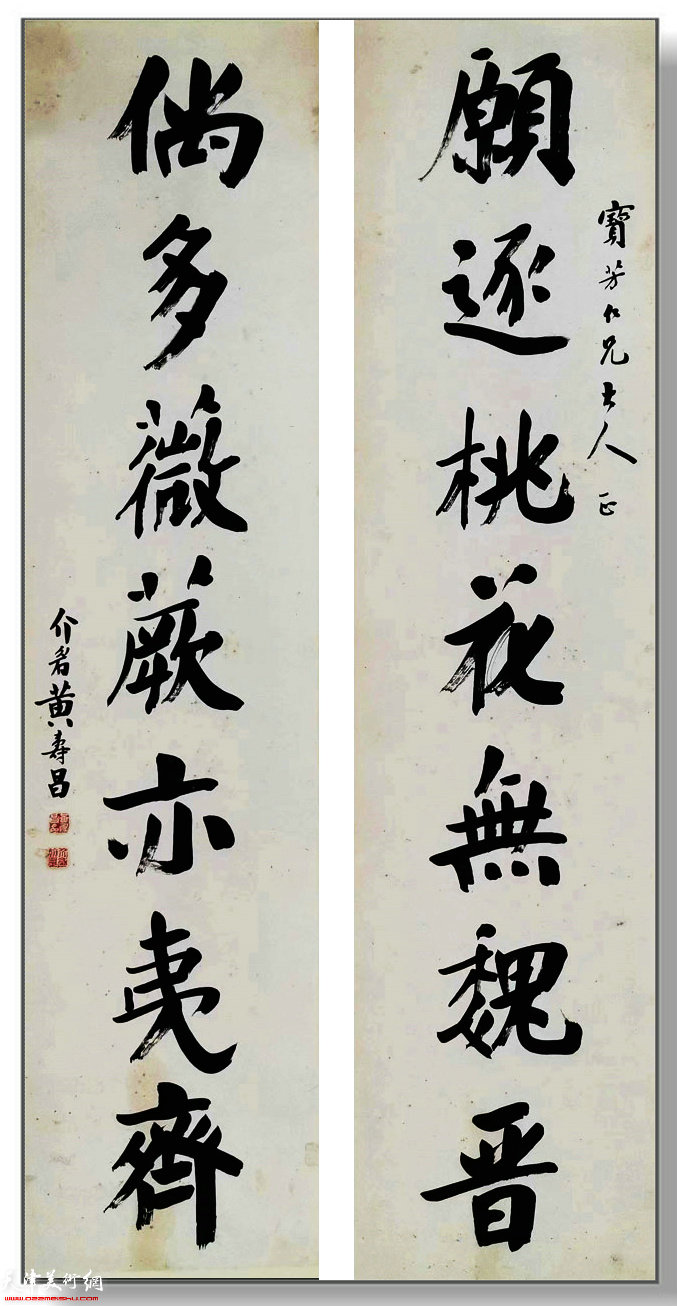 寶芳仁兄大人正
願逐桃花無魏晉
倘多薇蕨亦夷齊
介耆黄壽昌
天津美術網